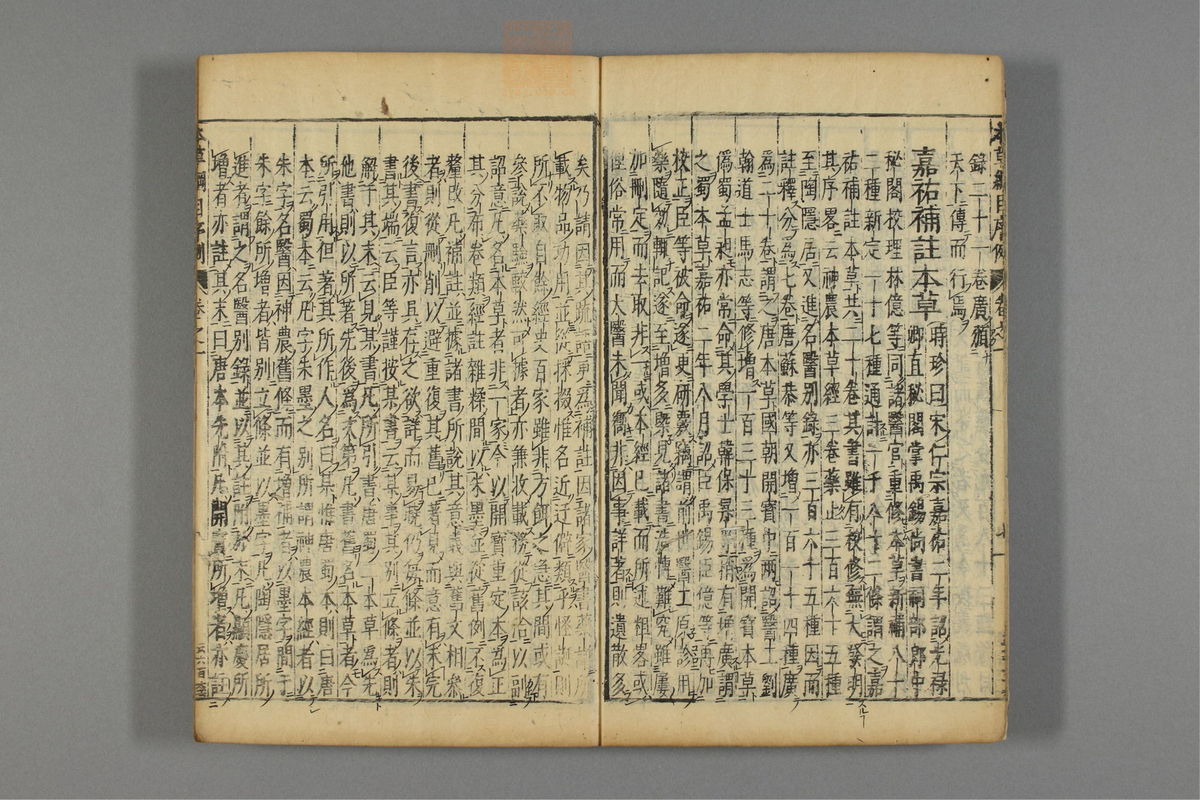 本草綱目序例 卷之一
錄二十一卷廣頒
天下傳而行焉
嘉祐補註本草
時珍曰宋仁宗嘉祐二年詔光祿
卿直秘閣掌禹錫尚書祠部郎中
秘閣校理林億等同諸醫官重修本草新補八十
二種新定一十七種通計一千八十二條謂之嘉
祐補註本草共二十卷其書雖有校修無大發明
其序畧云神農本草經三卷藥止三百六十五種
至陶隱居又進名醫別錄亦三百六十五種因而
註釋分為七卷唐蘇恭等又增一百一十四種廣
為二十卷謂之唐本草國朝開寶中兩詔醫工劉
翰道士馬志等修增一百三十三種為開寶本草
偽蜀孟昶亦常命其學士韓保昇等稍有增廣謂
之蜀本草嘉祐二年八月詔臣禹錫臣億等再加
校正臣等被命遂更研覈竊謂前世醫工原診用
藥隨効輒記遂至增多槩見諸書浩博難究雖屢
加刪定而去取非一或本經已載而所述粗畧或
俚俗常用而太醫未聞嚮非因事詳著則遺散多
矣乃請因其疏
補註因諸家醫書藥
載物品功用並從採掇惟名近迂僻類乎怪誕則
所不取自餘經史百家雖非方餌之急其間或有
參說藥驗較然可據者亦兼收載務從該洽以副
詔意凡名本草者非一家今以開寶重定本為正
其分布卷類經註雜糅間以朱墨並從舊例不復
釐改凡補註並據諸書所說其意義與舊文相參
者則從刪削以避重復其舊已著見而意有未完
後書復言亦具存之欲詳而易曉仍每條並以朱
書其端云臣等謹按某書云某事其別立條者則
解于其末云見某書凡所引書唐蜀二本草為先
他書則以所著先後為次第凡書舊名本草者今
所引用但著其所作人名曰某惟唐蜀本則曰唐
本云蜀本云凡字朱墨之別所謂神農本經者以
朱字名醫因神農舊條而有增補者以墨字間于
朱字餘所增者皆別立條並以墨字凡陶隱居所
進者謂之名醫別錄並以其註附於末凡顯慶所
增者亦註其末曰唐本先附凡開寶所增者亦註
本草綱目序例 卷之一